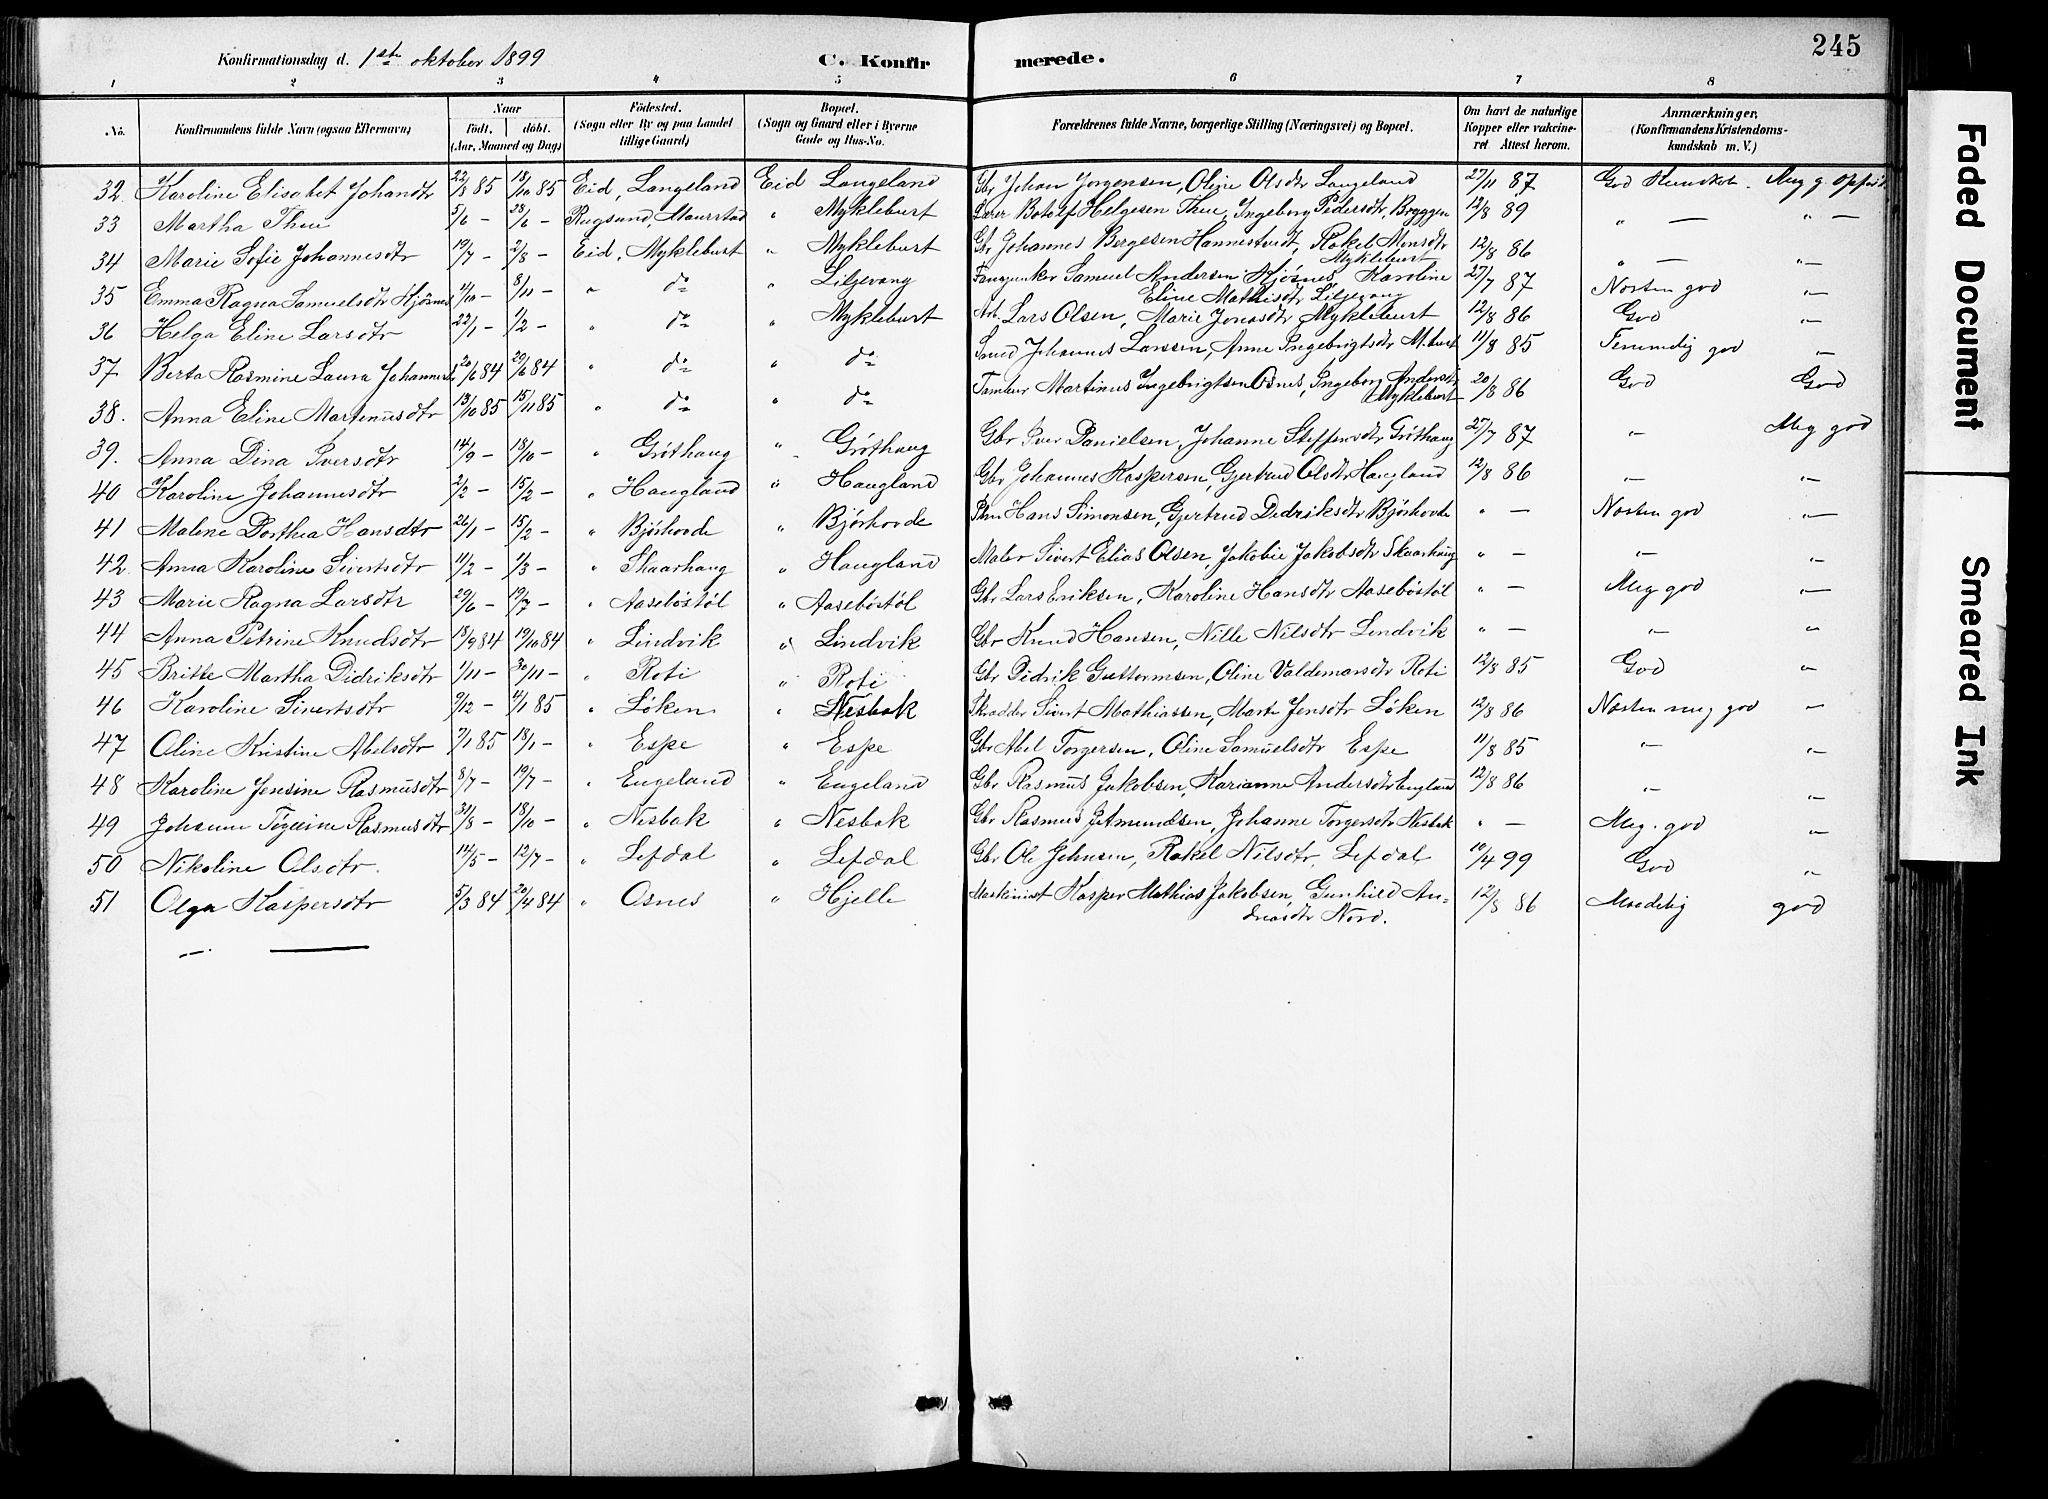 245
Konfirmationsdag d. 1ste oktober 1899 C. Konfirmerede.
1 2 3 4 5 6 7 8
No. Konfirmandens fulde Navn (ogsaa Efternavn) Naar födt, döbt. (Aar, Maaned og Dag) Födested. (Sogn eller By og paa Landet tillige Gaard) Bopæl. (Sogn og Gaard eller i Byerne Gade og Hus-No. Forældrenes fulde Navne, borgerlige Stilling (Næringsvei) og Bopæl. Om havt de naturlige Kopper eller vakcineret Attest herom. Anmærkninger, (Konfirmandens Kristendomskundskab m. V.)
32 Karoline Elisabet Johandtr 22/8 85 18/10 85 Eid, Langeland Eid Langeland Gbr Johan Jorgensen, Oline Olsdtr Langeland 27/11 87 God Kundskab. Meg g. opførs
33 Martha Thue 5/6 — 28/6 — Rugsund, Maurstad " Myklebust Lærer Botolf Helgesen Thue, Ingeborg Pedersdtr Bryggen 12/8 89 " — " —
34 Marie Sofie Johannesdtr 19/7 — 2/8 — Eid, Myklebust " Myklebust Gbr Johannes Bergesen Hannestvedt, Rakel Monsdtr Myklebust 12/8 86 " — "—
35 Emma Ragna Samuelsdtr Hjösnes 11/10 — 8/11 — " do " Liljevang Samuel Andersen Hjösnes, Karoline Eline Mathisdtr Liljevang 27/7 87 Næsten god "—
36 Helga Eline Larsdtr 22/1 — 1/2 — " do " Myklebust Arb. Lars Olsen, Marie Jonasdtr Myklebust 12/8 86 God "—
37 Berta Rasmine Laura Johannesdtr 20/6 84 29/6 84 " do " do Smed Johannes Larssen, Anne Ingebrigtsdtr M.bust 11/8 85 Temmelig god "—
38. Anna Eline Martinusdtr 13/10 85 15/11 85 " do " do Tambur Martinus Ingebrigtsen Osnes, Ingeborg Andersdtr Myklebust 20/8 86 God God
39. Anna Dina Iversdtr 14/9 — 18/10 — " Gröthaug " Gröthaug Gbr Iver Danielsen, Johanne Steffensdtr Gröthaug 27/7 87 "— Meg god
40 Karoline Johannesdtr 2/2 — 15/2 — " Haugland " Haugland Gbr Johannes Kaspersen, Gjertrud Olsdtr Haugland 12/8 86 "— "—
41 Malene Dorthea Hansdtr 26/1 — 15/2 — " Bjørhovde " Bjørhovde Hans Simonsen, Gjertrud Didriksdtr Bjørhovde " — Næsten god "—
42 Anna Karoline Sivertsdtr 11/2 — 1/3 — " Skaarhaug " Haugland Maler Sivert Elias Olsen, Jakobie Jakobsdtr Skaarhaug " — "— "—
43 Marie Ragna Larsdtr 29/6 — 19/7 — " Aasebøstøl " Aasebøstøl Gbr Lars Eriksen, Karoline Hansdtr Aasebøstøl " — Meg god "—
44 Anna Petrine Knudsdtr 18/9 84 19/10 84 " Lindvik " Lindvik Gbr Knud Hansen, Nille Nilsdtr Lindvik " — "— "
45 Britte Martha Didriksdtr 1/11 — 30/11 — " Roti " Roti Gbr Didrik Guttormsen, Oline Valdemarsdtr Roti 12/8 85 God "
46 Karoline Sivertsdtr 9/12 — 4/1 85 " Løken " Nesbak Skrædder Sivert Mathiassen, Marte Jensdtr Løken 12/8 86 Næsten meg god "—
47 Oline Kristine Abelsdtr 7/1 85 18/1 — " Espe " Espe Gbr Abel Torgersen, Oline Samuelsdtr Espe 11/8 85 "— "—
48 Karoline Jensine Rasmusdtr 8/7 — 19/7 — " Engeland " Engeland Gbr Rasmus Jakobsen, Karianne Andersdtr Engeland 12/8 86 "— "—
49 Johanne Rasmusdtr 31/8 — 18/10 — " Nesbak " Nesbak Gbr Rasmus Jetmundsen, Johanne Torgersdtr Nesbak " — Meg. god "—
50 Nikoline Olsdtr. 14/5 — 12/7 — " Lefdal " Lefdal Gbr Ole Johnsen, Rakel Nilsdtr, Lefdal 10/4 99 God "
51 Olga Kaspersdtr 5/3 84 20/4 84 " Osnes " Hjelle Maskinist Kasper Mathias Jakobsen, Gunhild Andreasdtr Nord. 12/8 86 Maadelig god
Faded Document
Smeared Ink